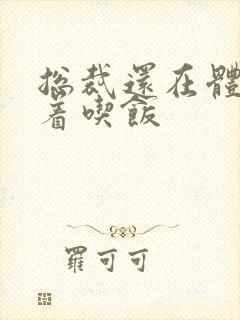 总裁還在體
着喫飯
羅可可